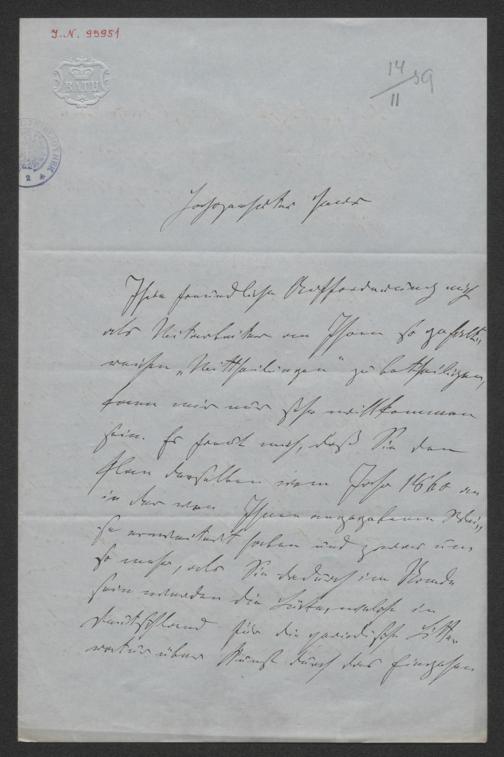 J.N. 95951
BATH
14/11 59
Hochgeehrter Herr
Ihre freundliche Aufforderung mich
als Mitarbeiter an Ihren so gehalt„
reichen „Mittheilungen" zu betheiligen,
kann mir nur sehr willkommen
sein. Es freut mich, daß Sie den
Plan derselben vom Jahr 1860 an
in der von Ihnen angegebenen Wei„
se erweitert haben und zwar um
so mehr, als Sie dadurch im Stande
sein werden die Lücke, welche in
Deutschland für die periodische Litte„
ratur über Kunst durch das Eingehen